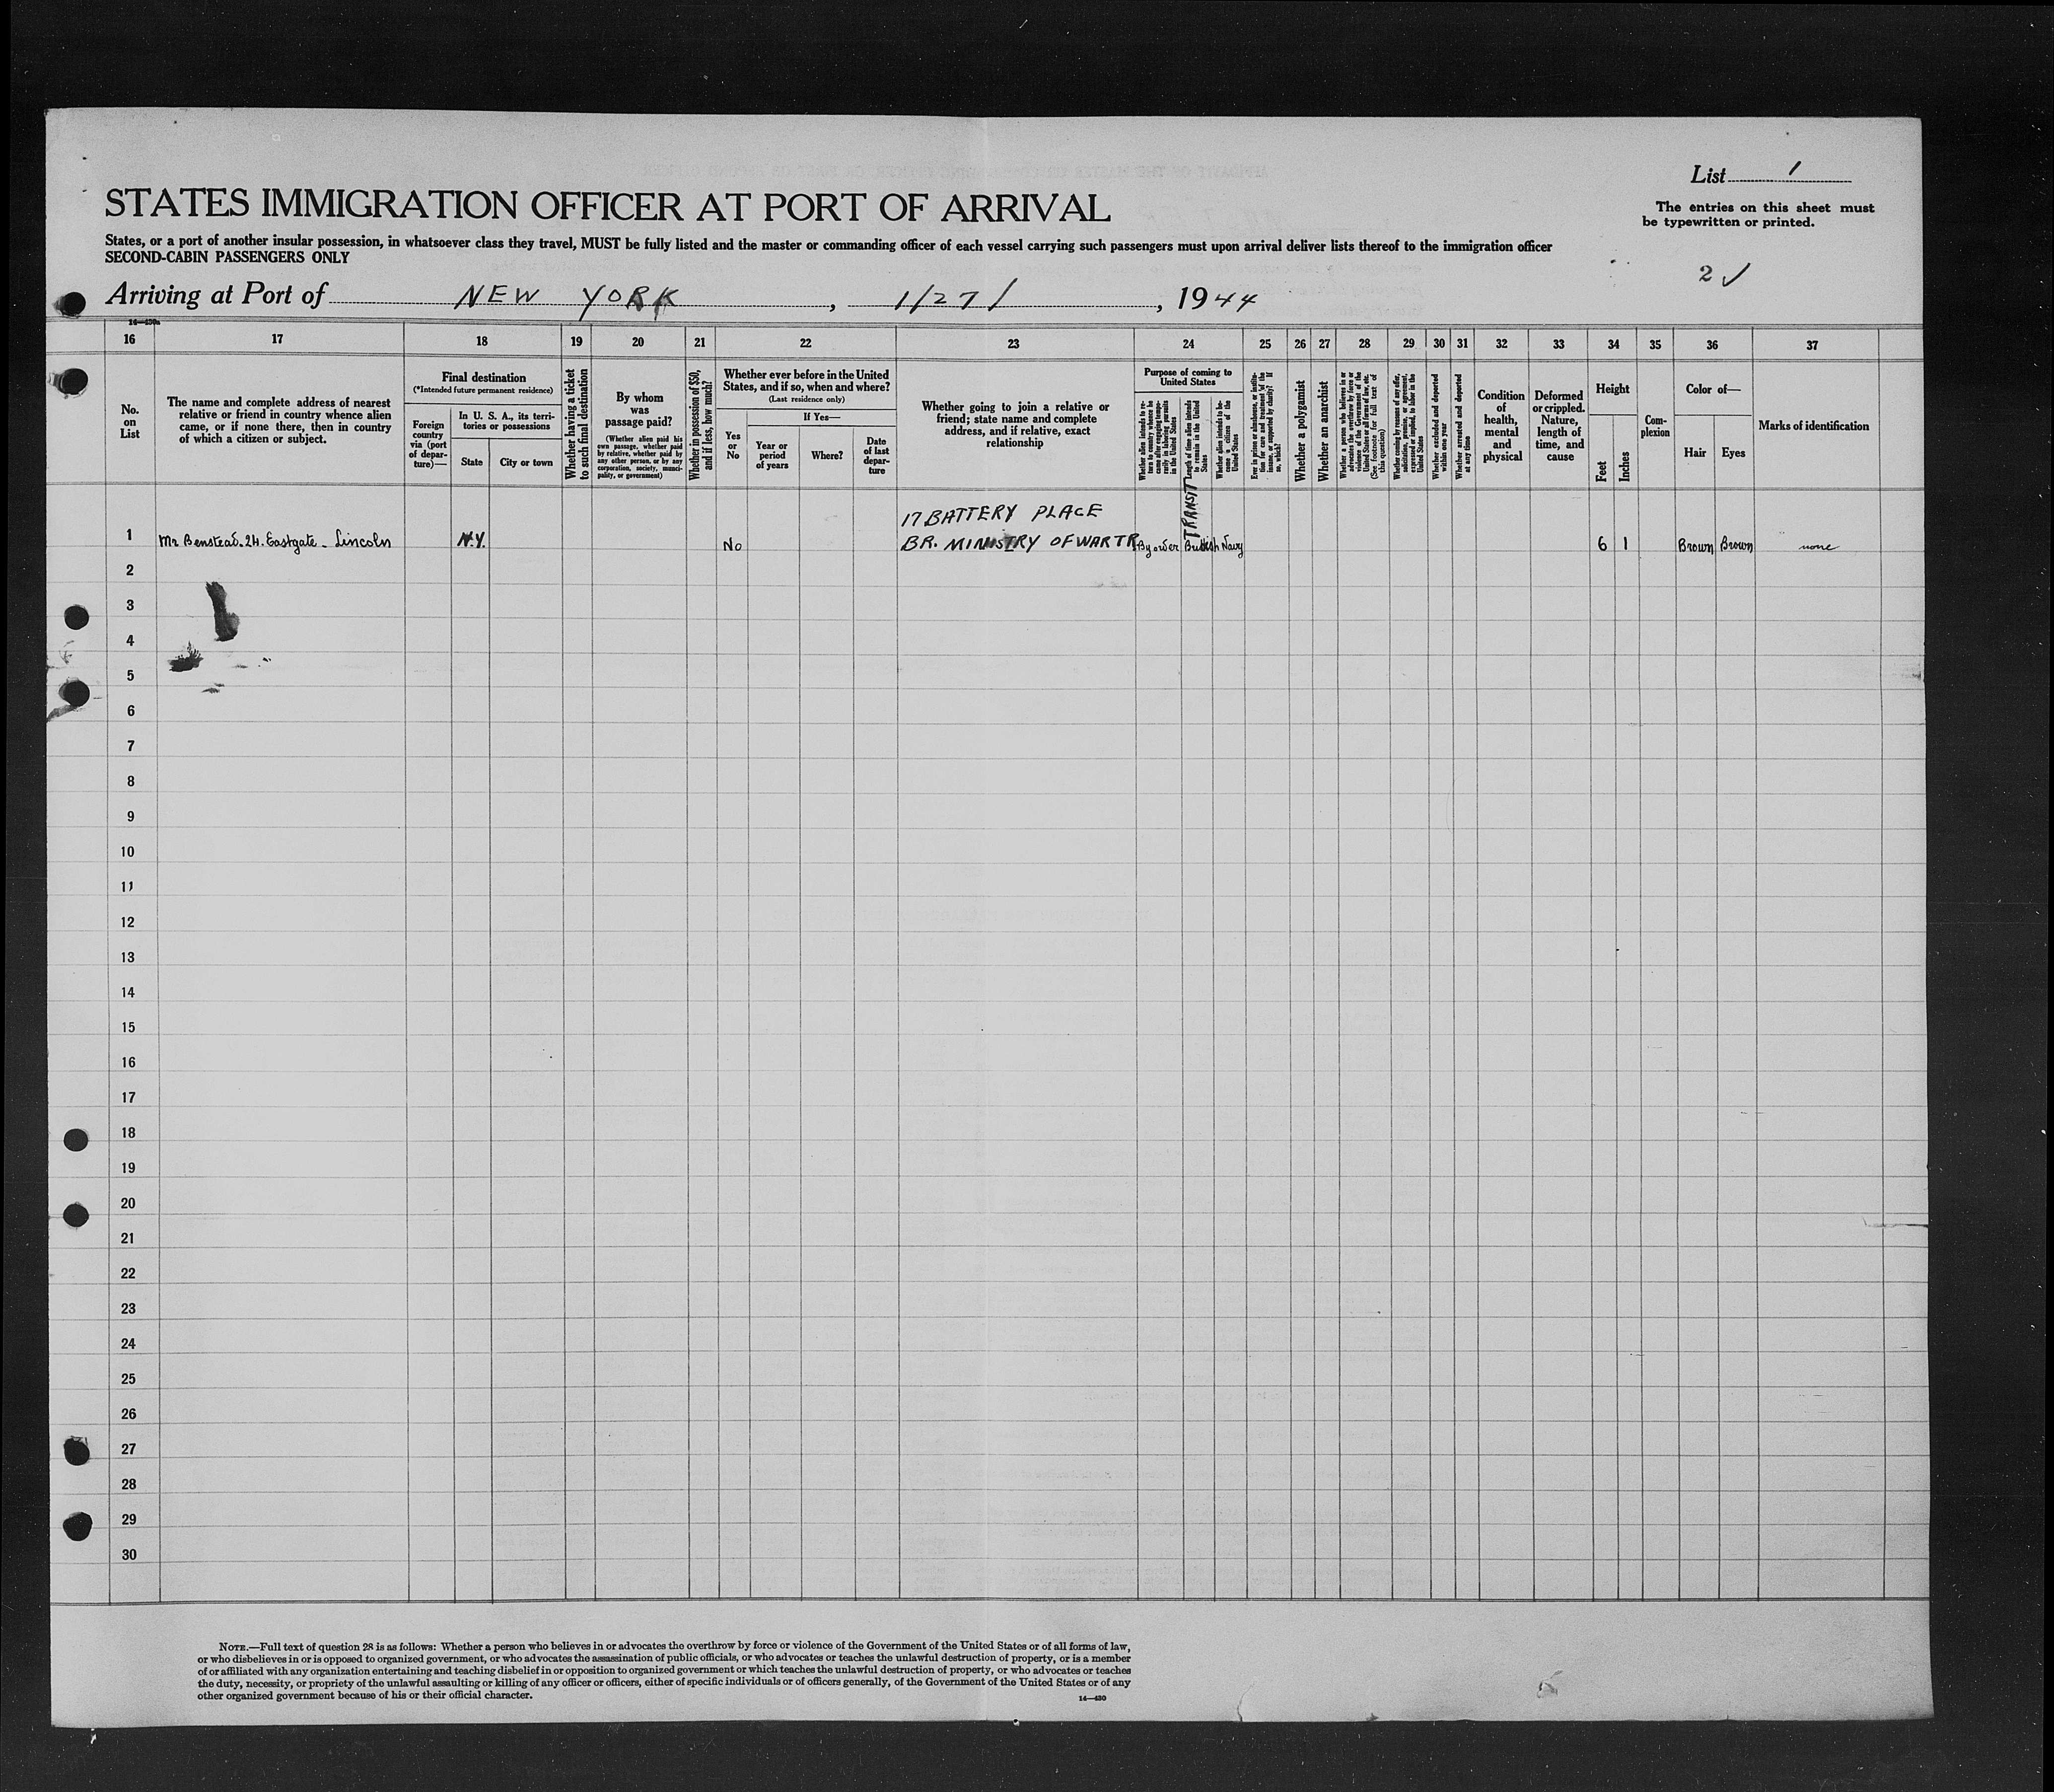 List 1
STATES IMMIGRATION OFFICER AT PORT OF ARRIVAL
The entries on this sheet must
be typewritten or printed.
States, or a port of another insular possession, in whatsoever class they travel, MUST be fully listed and the master or commanding officer of each vessel carrying such passengers must upon arrival deliver lists thereof to the immigration officer
SECOND-CABIN PASSENGERS ONLY
2 ✓
Arriving at Port of NEW YORK, 1/27/, 1944
14-430a
16 17 18 19 20 21 22 23 24 25 26 27 28 29 30 31 32 33 34 35 36 37
No.
on
List
The name and complete address of nearest
relative or friend in country whence alien
came, or if none there, then in country
of which a citizen or subject.
Final destination
(*Intended future permanent residence)
Foreign
country
via (port
of depar-
ture)—
In U. S. A., its terri-
tories or possessions
State
City or town
Whether having a ticket
to such final destination
By whom
was
passage paid?
(Whether alien paid his
own passage, whether paid
by relative, whether paid by
any other person, or by any
corporation, society, munici-
pality, or government)
Whether in possession of $50,
and if less, how much?
Whether ever before in the United
States, and if so, when and where?
(Last residence only)
Yes
or
No
If Yes—
Year or
period
of years
Where?
Date
of last
depar-
ture
Whether going to join a relative or
friend; state name and complete
address, and if relative, exact
relationship
Purpose of coming to
United States
Whether alien intends to re-
turn to country whence he
came after engaging tempo-
rarily in laboring pursuits
in the United States
Length of time alien intends
to remain in the United
States
Whether alien intends to be-
come a citizen of the
United States
Ever in prison or almshouse, or institu-
tion for care and treatment of the
insane, or supported by charity? If
so, which?
Whether a polygamist
Whether an anarchist
Whether a person who believes in or
advocates the overthrow by force or
violence of the Government of the
United States or all forms of law, etc.
(See footnote for full text of
this question)
Whether coming by reasons of any offer,
solicitation, promise, or agreement,
expressed or implied, to labor in the
United States
Whether excluded and deported
within one year
Whether arrested and deported
at any time
Condition
of
health,
mental
and
physical
Deformed
or crippled.
Nature,
length of
time, and
cause
Height
Feet
Inches
Com-
plexion
Color of—
Hair
Eyes
Marks of identification
17 BATTERY PLACE
TRANSIT
1 Mr Benstead. 24. Eastgate - Lincoln N.Y. No BR. MINISTRY OF WAR TR By order British Navy 6 1 Brown Brown none
2
3
4
5
6
7
8
9
10
11
12
13
14
15
16
17
18
19
20
21
22
23
24
25
26
27
28
29
30
NOTE.—Full text of question 28 is as follows: Whether a person who believes in or advocates the overthrow by force or violence of the Government of the United States or of all forms of law,
or who disbelieves in or is opposed to organized government, or who advocates the assassination of public officials, or who advocates or teaches the unlawful destruction of property, or is a member
of or affiliated with any organization entertaining and teaching disbelief in or opposition to organized government or which teaches the unlawful destruction of property, or who advocates or teaches
the duty, necessity, or propriety of the unlawful assaulting or killing of any officer or officers, either of specific individuals or of officers generally, of the Government of the United States or of any
other organized government because of his or their official character.
14-430